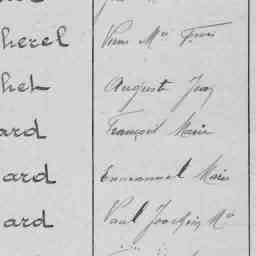 herel
het Auguste Jean
ard François Marie
ard Emmanuel Marie
ard Paul Joachim Mie